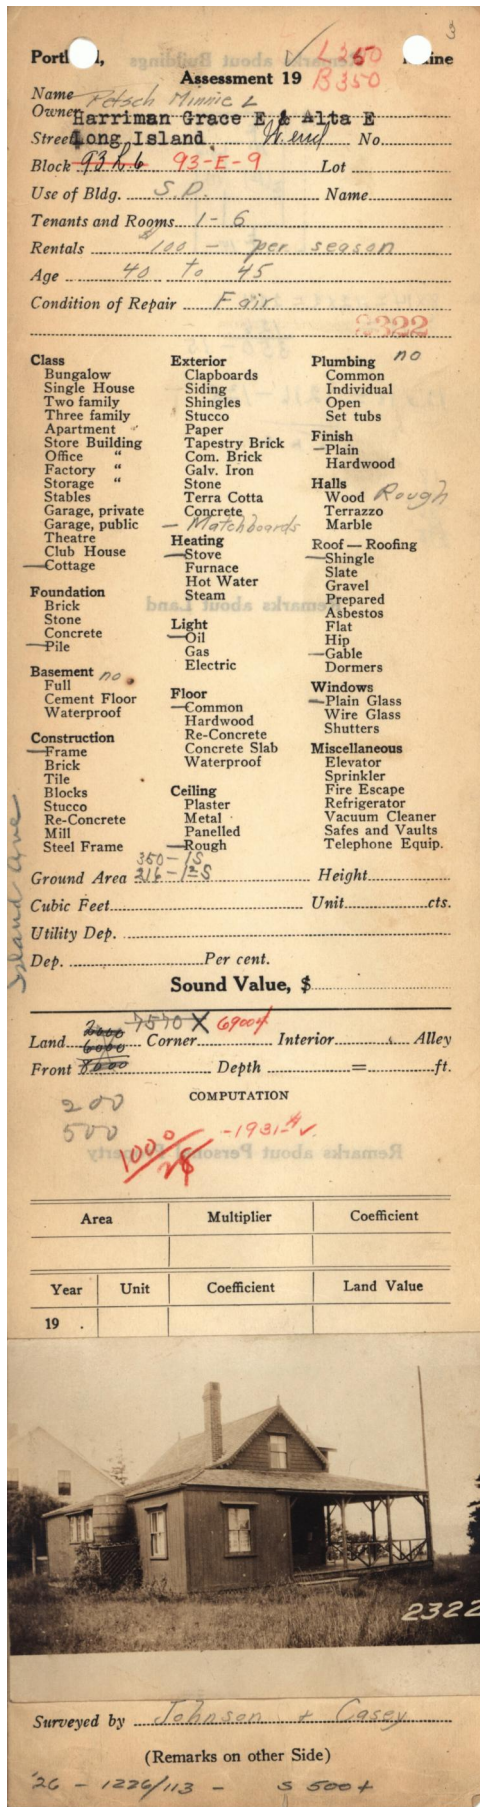 3
L 350
Portland, Maine
Assessment 19
B 350
Name Petsch Minnie L
Owner Harriman Grace E & Alta E
Street Long Island. W. end No.
Block 93 L 6 93-E-9 Lot
Use of Bldg. S.D. Name
Tenants and Rooms 1 - 6
Rentals $100 - per season
Age 40 to 45
Condition of Repair Fair
2322
Class
Bungalow
Single House
Two family
Three family
Apartment "
Store Building
Office "
Factory "
Storage "
Stables
Garage, private
Garage, public
Theatre
Club House
— Cottage
Foundation
Brick
Stone
Concrete
— Pile
Basement no.
Full
Cement Floor
Waterproof
Construction
— Frame
Brick
Tile
Blocks
Stucco
Re-Concrete
Mill
Steel Frame
Exterior
Clapboards
Siding
Shingles
Stucco
Paper
Tapestry Brick
Com. Brick
Galv. Iron
Stone
Terra Cotta
Concrete
— Matchboards
Heating
— Stove
Furnace
Hot Water
Steam
Light
— Oil
Gas
Electric
Floor
— Common
Hardwood
Re-Concrete
Concrete Slab
Waterproof
Ceiling
Plaster
Metal
Panelled
— Rough
Plumbing no
Common
Individual
Open
Set tubs
Finish
— Plain
Hardwood
Halls
Wood Rough
Terrazzo
Marble
Roof — Roofing
— Shingle
Slate
Gravel
Prepared
Asbestos
Flat
Hip
— Gable
Dormers
Windows
— Plain Glass
Wire Glass
Shutters
Miscellaneous
Elevator
Sprinkler
Fire Escape
Refrigerator
Vacuum Cleaner
Safes and Vaults
Telephone Equip.
Island Ave
350 - 1S
Ground Area 216 - 1½S Height
Cubic Feet Unit cts.
Utility Dep.
Dep. Per cent.
Sound Value, $
2000 7570 X 6900#
Land 6000 Corner Interior Alley
Front 8000 Depth = ft.
COMPUTATION
200
500
1000
- 1931
Remarks about Personal Property
Area Multiplier Coefficient
Year Unit Coefficient Land Value
19
2322
Surveyed by Johnson + Casey
(Remarks on other Side)
'26 - 1226/113 - S 500+